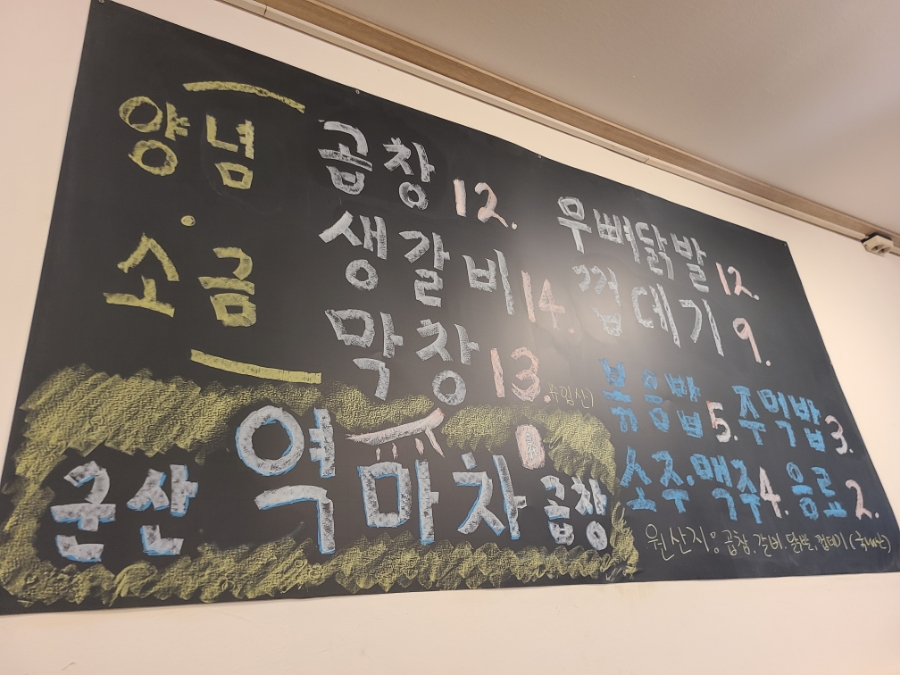 양념
소금
곱창 12.
생갈비 14.
막창 13 (수입산)
무뼈닭발 12.
껍데기 9.
볶음밥 5. 주먹밥 3.
소주·맥주 4. 음료 2.
원산지: 곱창, 갈비, 닭발, 껍데기 (국내산)
군산 역마차 곱창